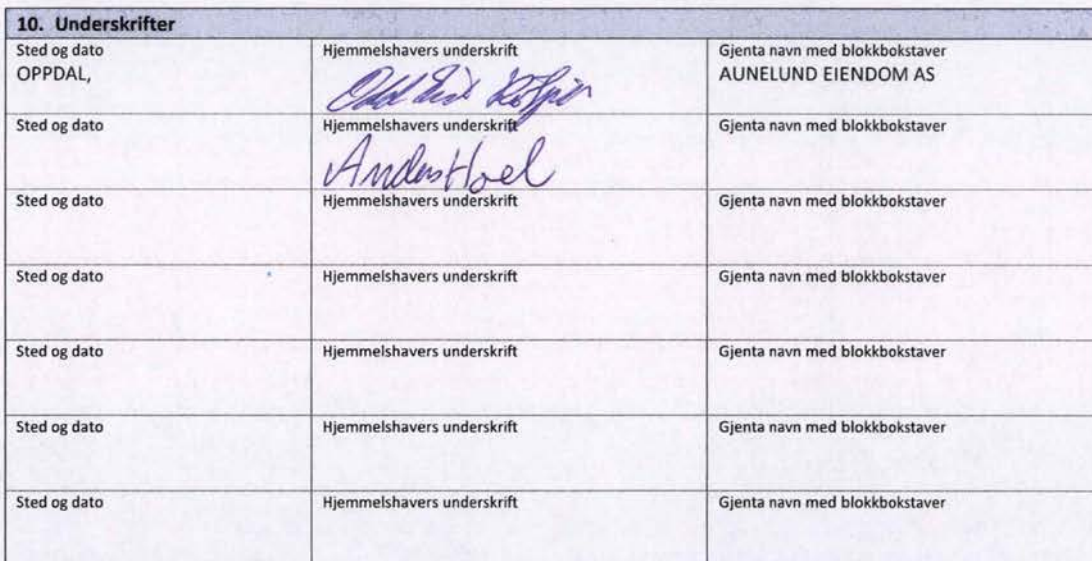 10. Underskrifter
Sted og dato Hjemmelshavers underskrift Gjenta navn med blokkbokstaver
OPPDAL, Odd AUNELUND EIENDOM AS
Sted og dato Hjemmelshavers underskrift Gjenta navn med blokkbokstaver
Anders Hoel
Sted og dato Hjemmelshavers underskrift Gjenta navn med blokkbokstaver
Sted og dato Hjemmelshavers underskrift Gjenta navn med blokkbokstaver
Sted og dato Hjemmelshavers underskrift Gjenta navn med blokkbokstaver
Sted og dato Hjemmelshavers underskrift Gjenta navn med blokkbokstaver
Sted og dato Hjemmelshavers underskrift Gjenta navn med blokkbokstaver